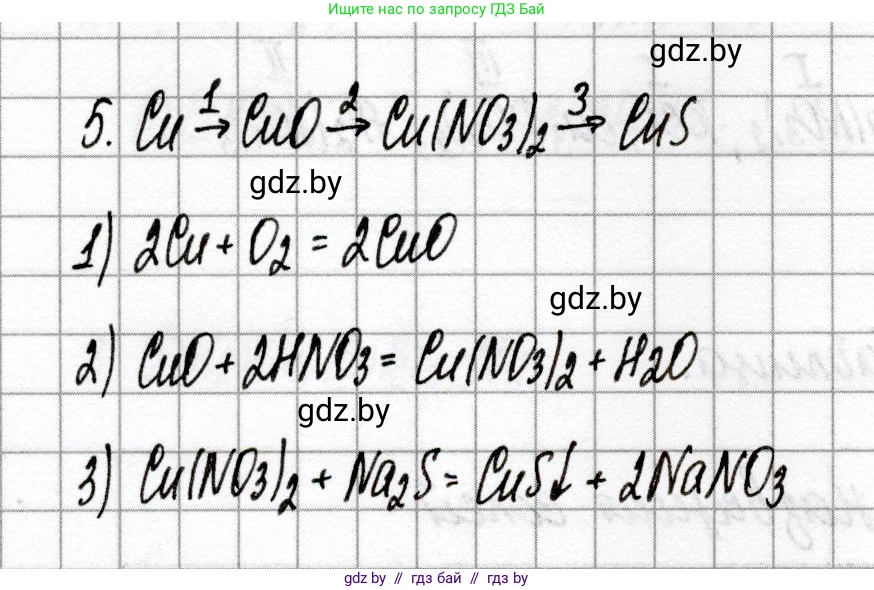 Ищите нас по запросу ГДЗ Бай
gdz.by
5. Cu →1 CuO →2 Cu(NO3)2 →3 CuS
gdz.by
1) 2Cu + O2 = 2CuO
gdz.by
2) CuO + 2HNO3 = Cu(NO3)2 + H2O
gdz.by
3) Cu(NO3)2 + Na2S = CuS↓ + 2NaNO3
gdz.by // гдз бай // гдз by